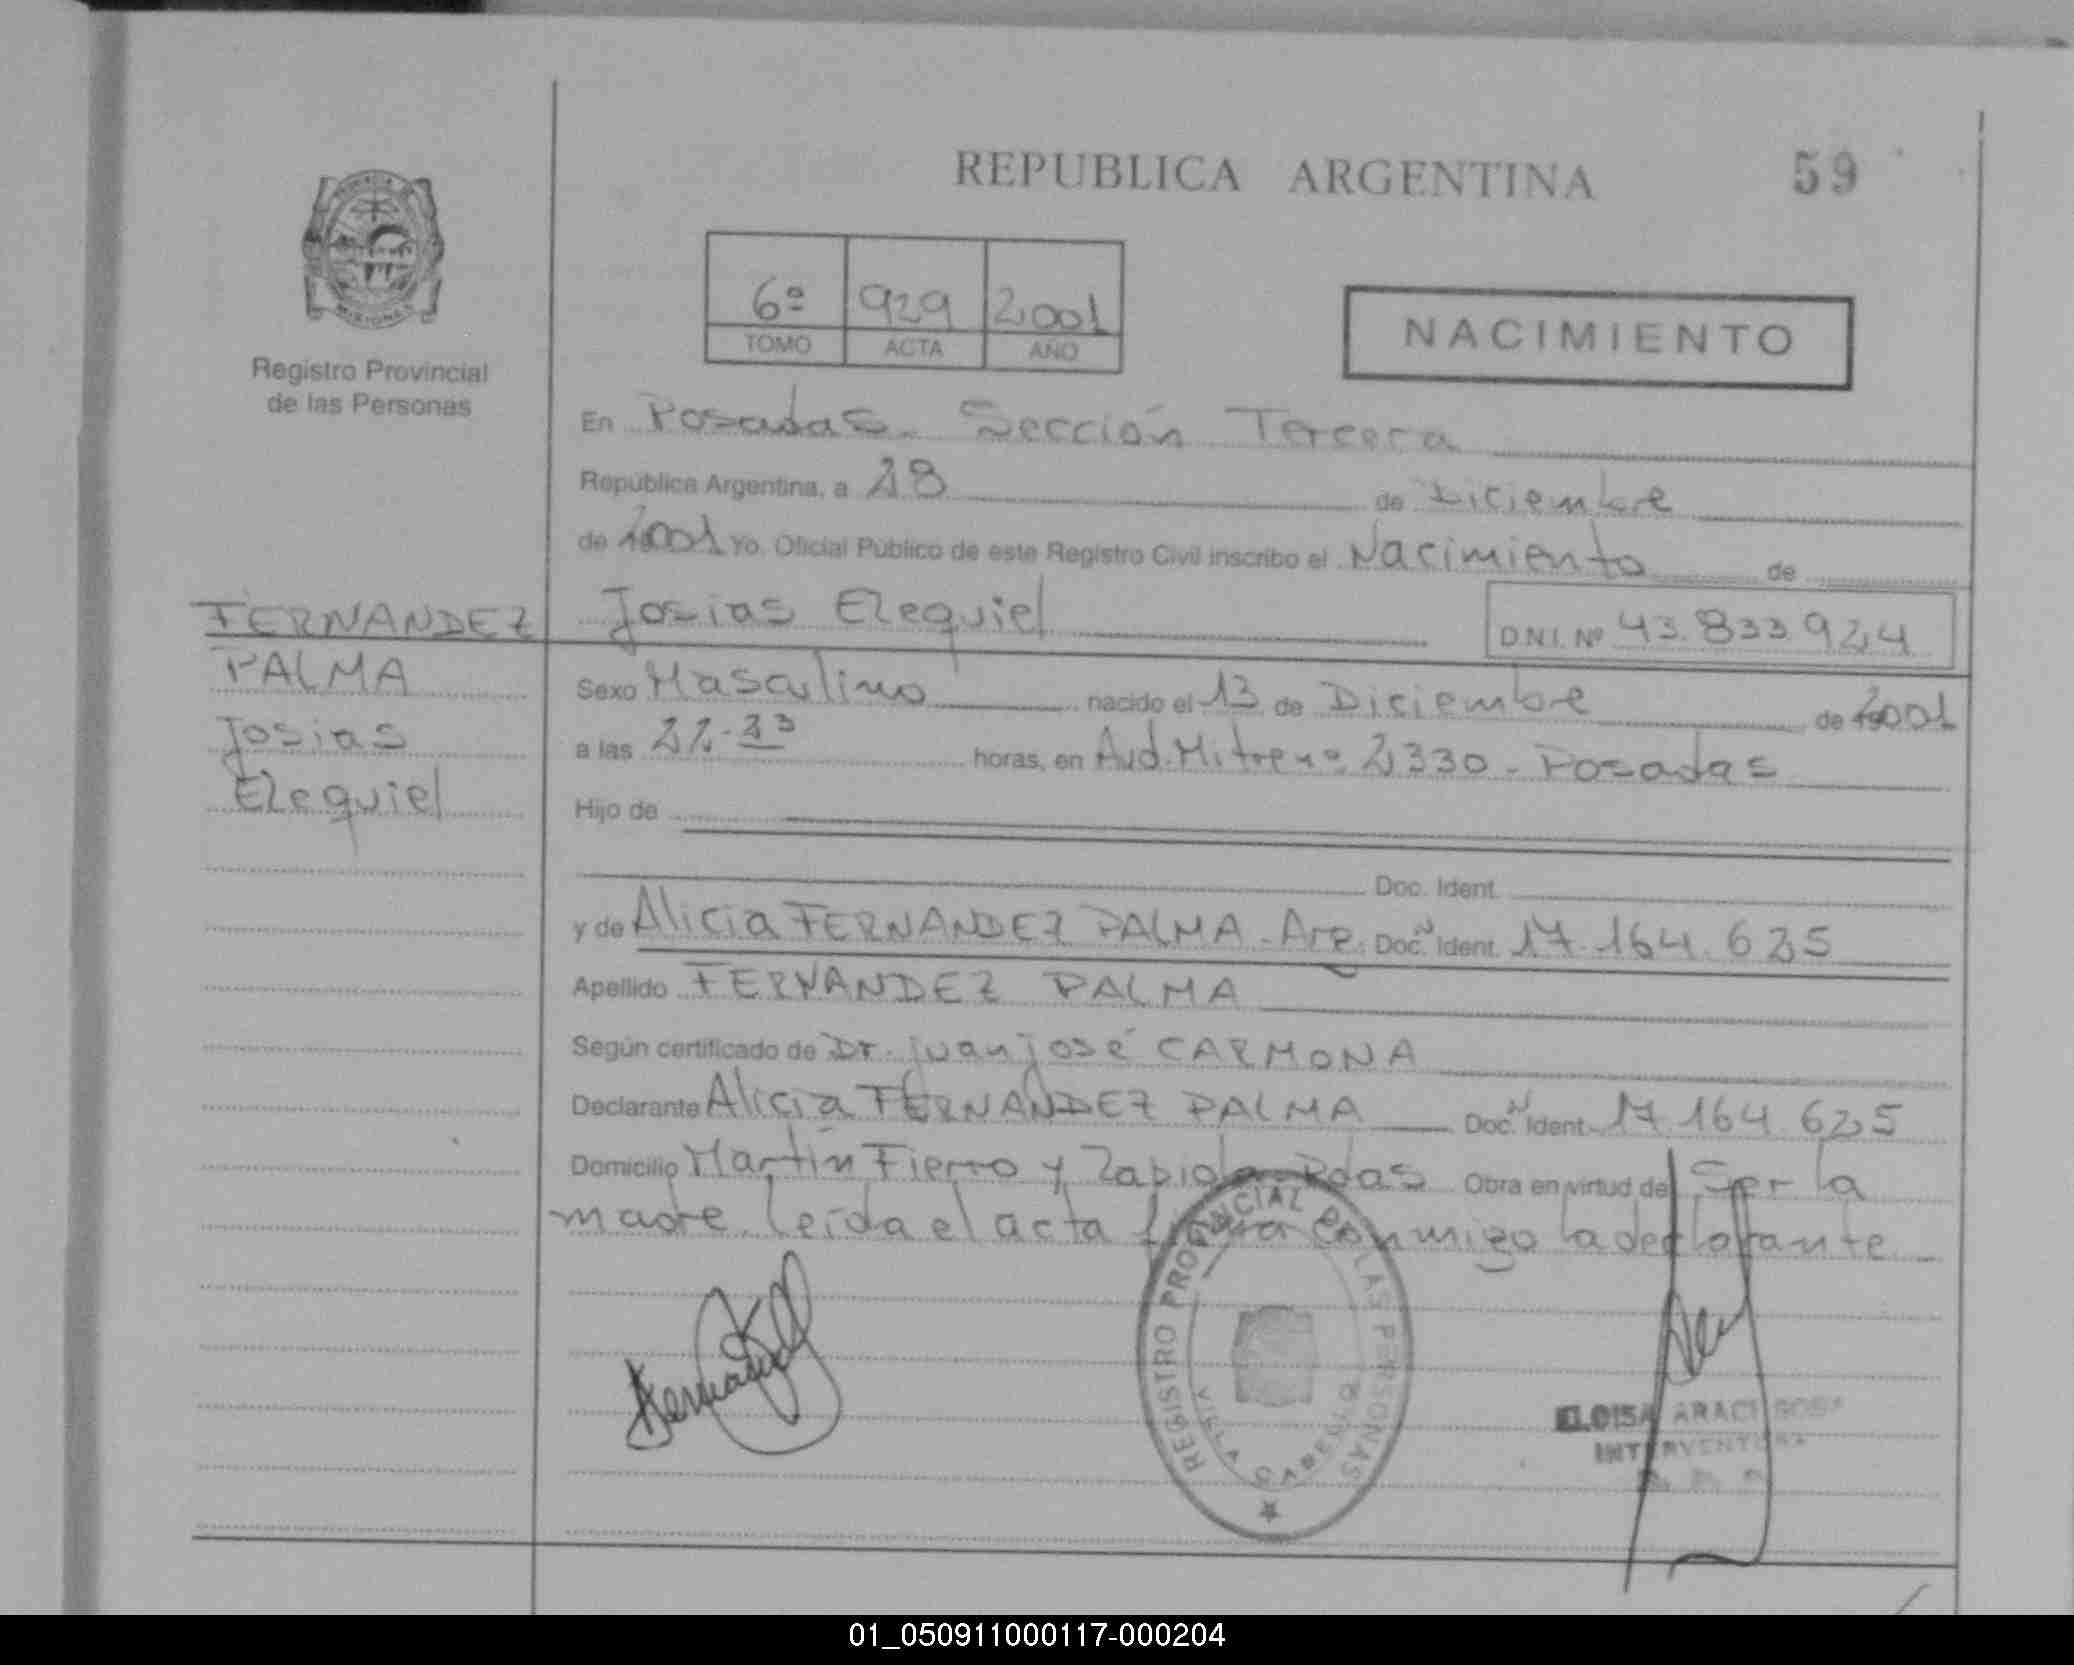 REPUBLICA ARGENTINA
59
6º 929 2001
TOMO ACTA AÑO
NACIMIENTO
MISIONES
Registro Provincial
de las Personas
En Posadas. Sección Tercera
República Argentina, a 28 de Diciembre
de 2001 Yo. Oficial Público de este Registro Civil inscribo el Nacimiento de
FERNANDEZ
PALMA
Josias
Ezequiel
Josias Ezequiel
D.N.I. Nº 43.833.924
Sexo Masculino nacido el 13 de Diciembre de 2001
a las horas, en Avd. Mitre nº 2330 - Posadas
Hijo de
Doc. Ident.
y de Alicia FERNANDEZ PALMA - Arg. Doc. N Ident. 17.164.625
Apellido FERNANDEZ PALMA
Según certificado de Dr. Juan José CARMONA
Declarante Alicia FERNANDEZ PALMA Doc. N Ident. 17.164.625
Domicilio Martín Fierro y Zapiola - Pdas Obra en virtud de Ser la
madre. Leída el acta firma conmigo la declarante
REGISTRO PROVINCIAL DE LAS PERSONAS
VILLA CABELLO
ELOISA ARACI SOSA
INTERVENTORA
01_050911000117-000204